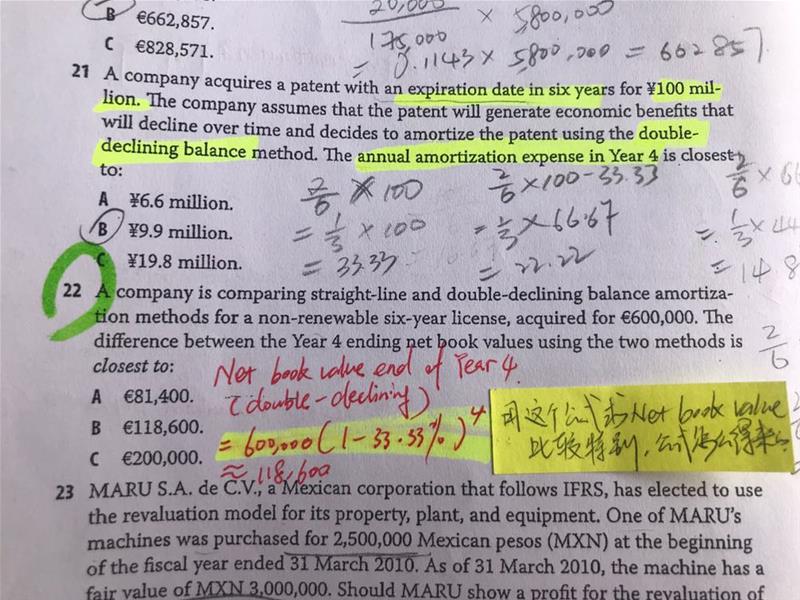 B €662,857.
20,000 × 5,800,000
175,000
C €828,571.
= 0.1143 × 5,800,000 = 662857.
21 A company acquires a patent with an expiration date in six years for ¥100 mil-
lion. The company assumes that the patent will generate economic benefits that
will decline over time and decides to amortize the patent using the double-
declining balance method. The annual amortization expense in Year 4 is closest
to:
A ¥6.6 million.
B ¥9.9 million.
C ¥19.8 million.
2/6 × 100
= 1/3 × 100
= 33.33
2/6 × 100 - 33.33
= 1/3 × 66.67
= 22.22
2/6 × 66
= 1/3 × 44
= 14.8
2/6
22 A company is comparing straight-line and double-declining balance amortiza-
tion methods for a non-renewable six-year license, acquired for €600,000. The
difference between the Year 4 ending net book values using the two methods is
closest to:
A €81,400.
B €118,600.
C €200,000.
Net book value end of Year 4.
(double-declining)
= 600,000 (1 - 33.33%)^4
≈ 118,600
用这个公式求Net book value
比较特别，公式怎么得来的
23 MARU S.A. de C.V., a Mexican corporation that follows IFRS, has elected to use
the revaluation model for its property, plant, and equipment. One of MARU's
machines was purchased for 2,500,000 Mexican pesos (MXN) at the beginning
of the fiscal year ended 31 March 2010. As of 31 March 2010, the machine has a
fair value of MXN 3,000,000. Should MARU show a profit for the revaluation of